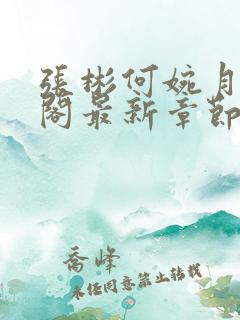 張彬何婉月
閣最新章節
喬峰
未經同意禁止轉載